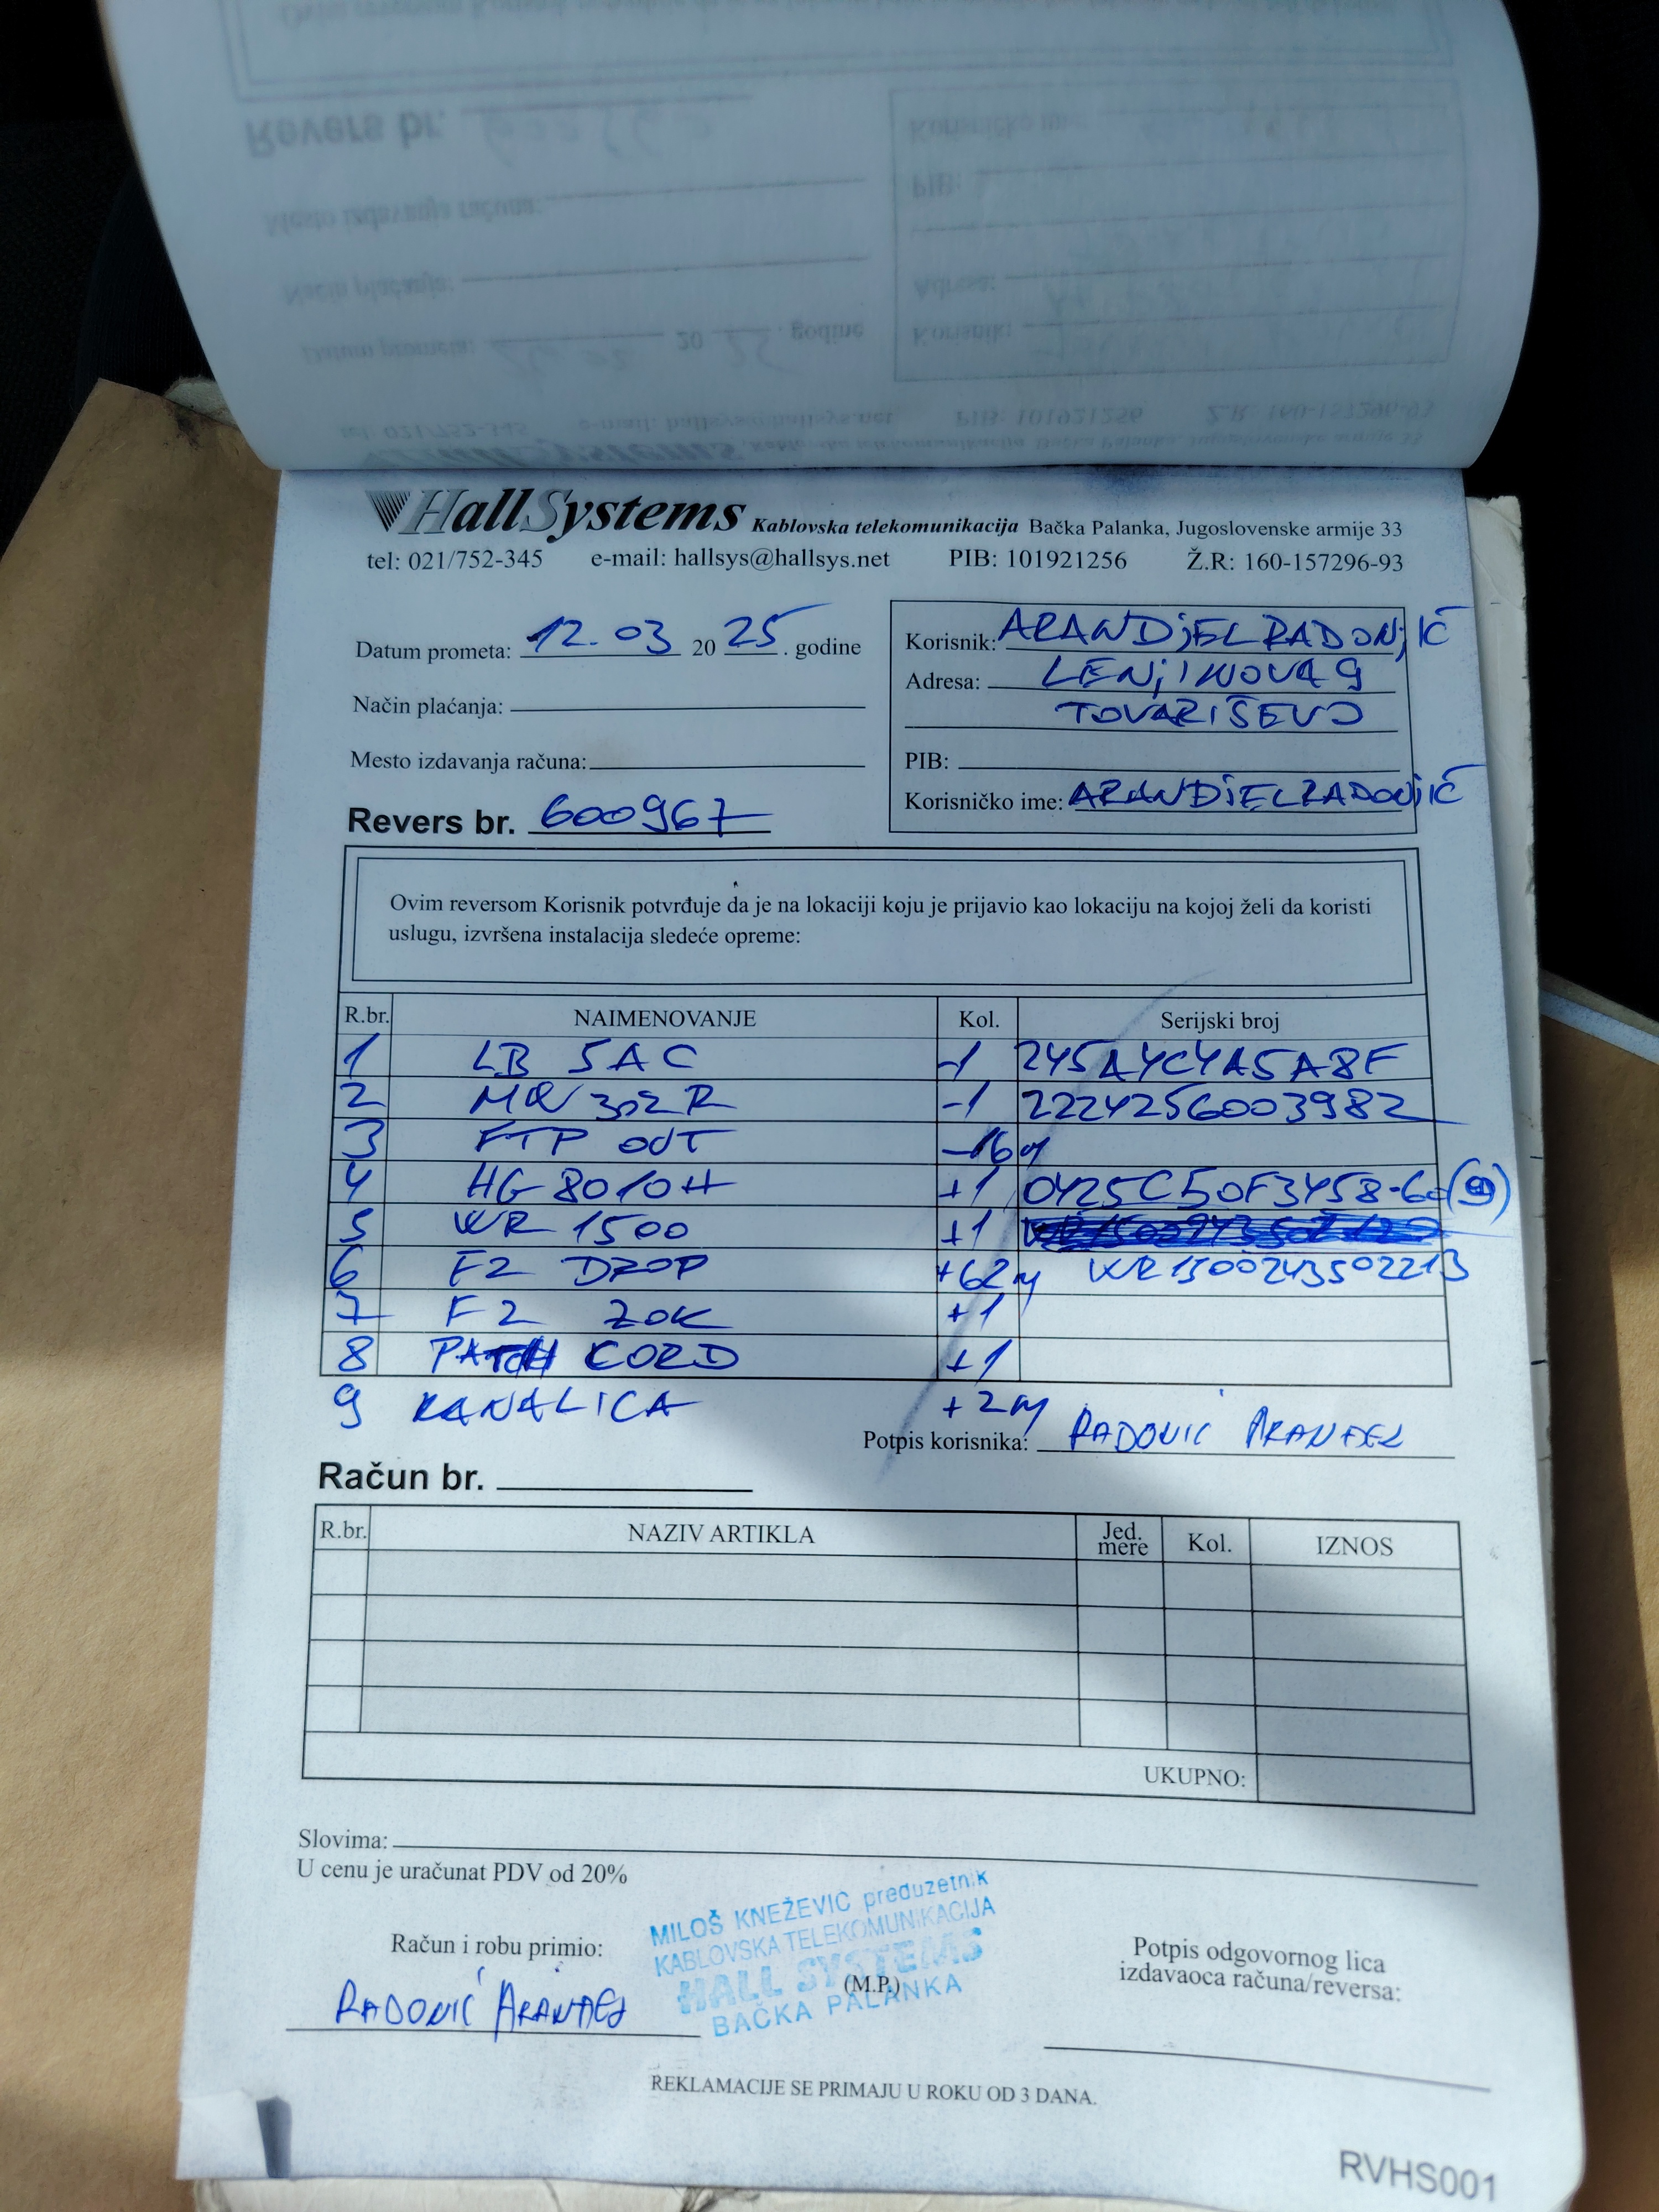 HallSystems Kablovska telekomunikacija Bačka Palanka, Jugoslovenske armije 33
tel: 021/752-345 e-mail: hallsys@hallsys.net PIB: 101921256 Ž.R: 160-157296-93
Datum prometa: 12.03 2025. godine
Način plaćanja:
Mesto izdavanja računa:
Revers br. 600967
Korisnik: ARANDjELRADONjIĆ
Adresa: LENjINOVA 9
TOVARIŠEVO
PIB:
Korisničko ime: ARANDjELRADONjIĆ
Ovim reversom Korisnik potvrđuje da je na lokaciji koju je prijavio kao lokaciju na kojoj želi da koristi
uslugu, izvršena instalacija sledeće opreme:
R.br. NAIMENOVANJE Kol. Serijski broj
1 LB 5AC -1 245A4C4A5A8F
2 -1 2224256003982
3 FTP ODT -16m
4 HG8010H +1 0425C50F3458-60
5 WR 1500 +1
6 F2 DROP +62m WR1500243502213
7 F2 ZOK +1
8 PATCH CORD +1
9 KANALICA +2m
Potpis korisnika: RADONIĆ ARANĐEL
Račun br.
R.br. NAZIV ARTIKLA Jed. mere Kol. IZNOS
UKUPNO:
Slovima:
U cenu je uračunat PDV od 20%
MILOŠ KNEŽEVIĆ preduzetnik
KABLOVSKA TELEKOMUNIKACIJA
HALL SYSTEMS
BAČKA PALANKA
Račun i robu primio:
(M.P.)
Potpis odgovornog lica
izdavaoca računa/reversa:
RADONIĆ ARANĐEL
REKLAMACIJE SE PRIMAJU U ROKU OD 3 DANA.
RVHS001